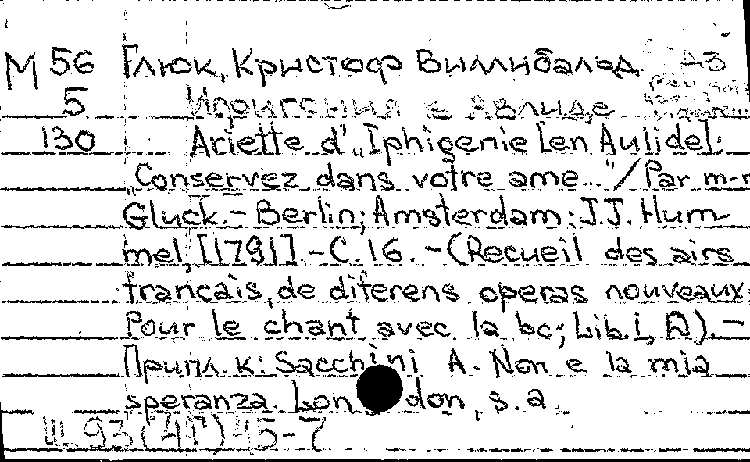 М 56 Глюк, Кристоф Виллибальд
5 Ифигения в Авлиде
130 Ariette d'„Iphigenie [en Aulide]:
„Conservez dans votre ame..."/Par m-r
Gluck.- Berlin; Amsterdam: J.J. Hum-
mel, [1781].-C. 16.-(Recueil des airs
francais, de diferens operas nouveaux:
Pour le chant avec la bc; Lib. I, A).-
Припл. к: Sacchini A. Non e la mia
speranza. London, s.a.
Ш 93(4Г)45-7